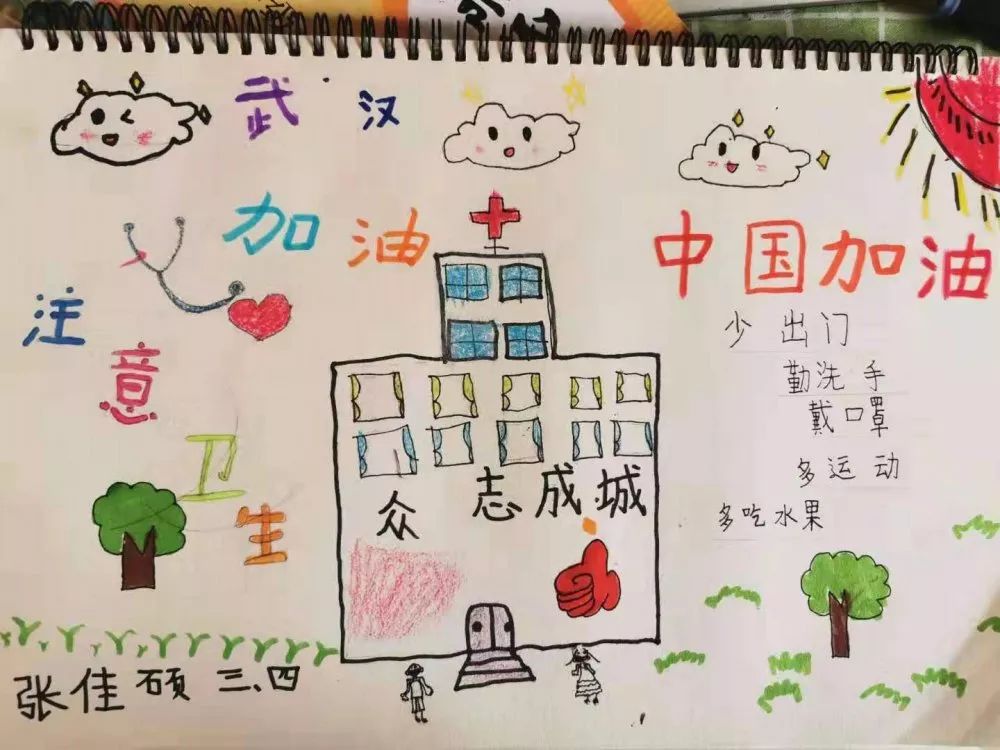 武汉
加油
中国加油
注意卫生
少出门
勤洗手
戴口罩
多运动
多吃水果
众志成城
张佳硕 三、四